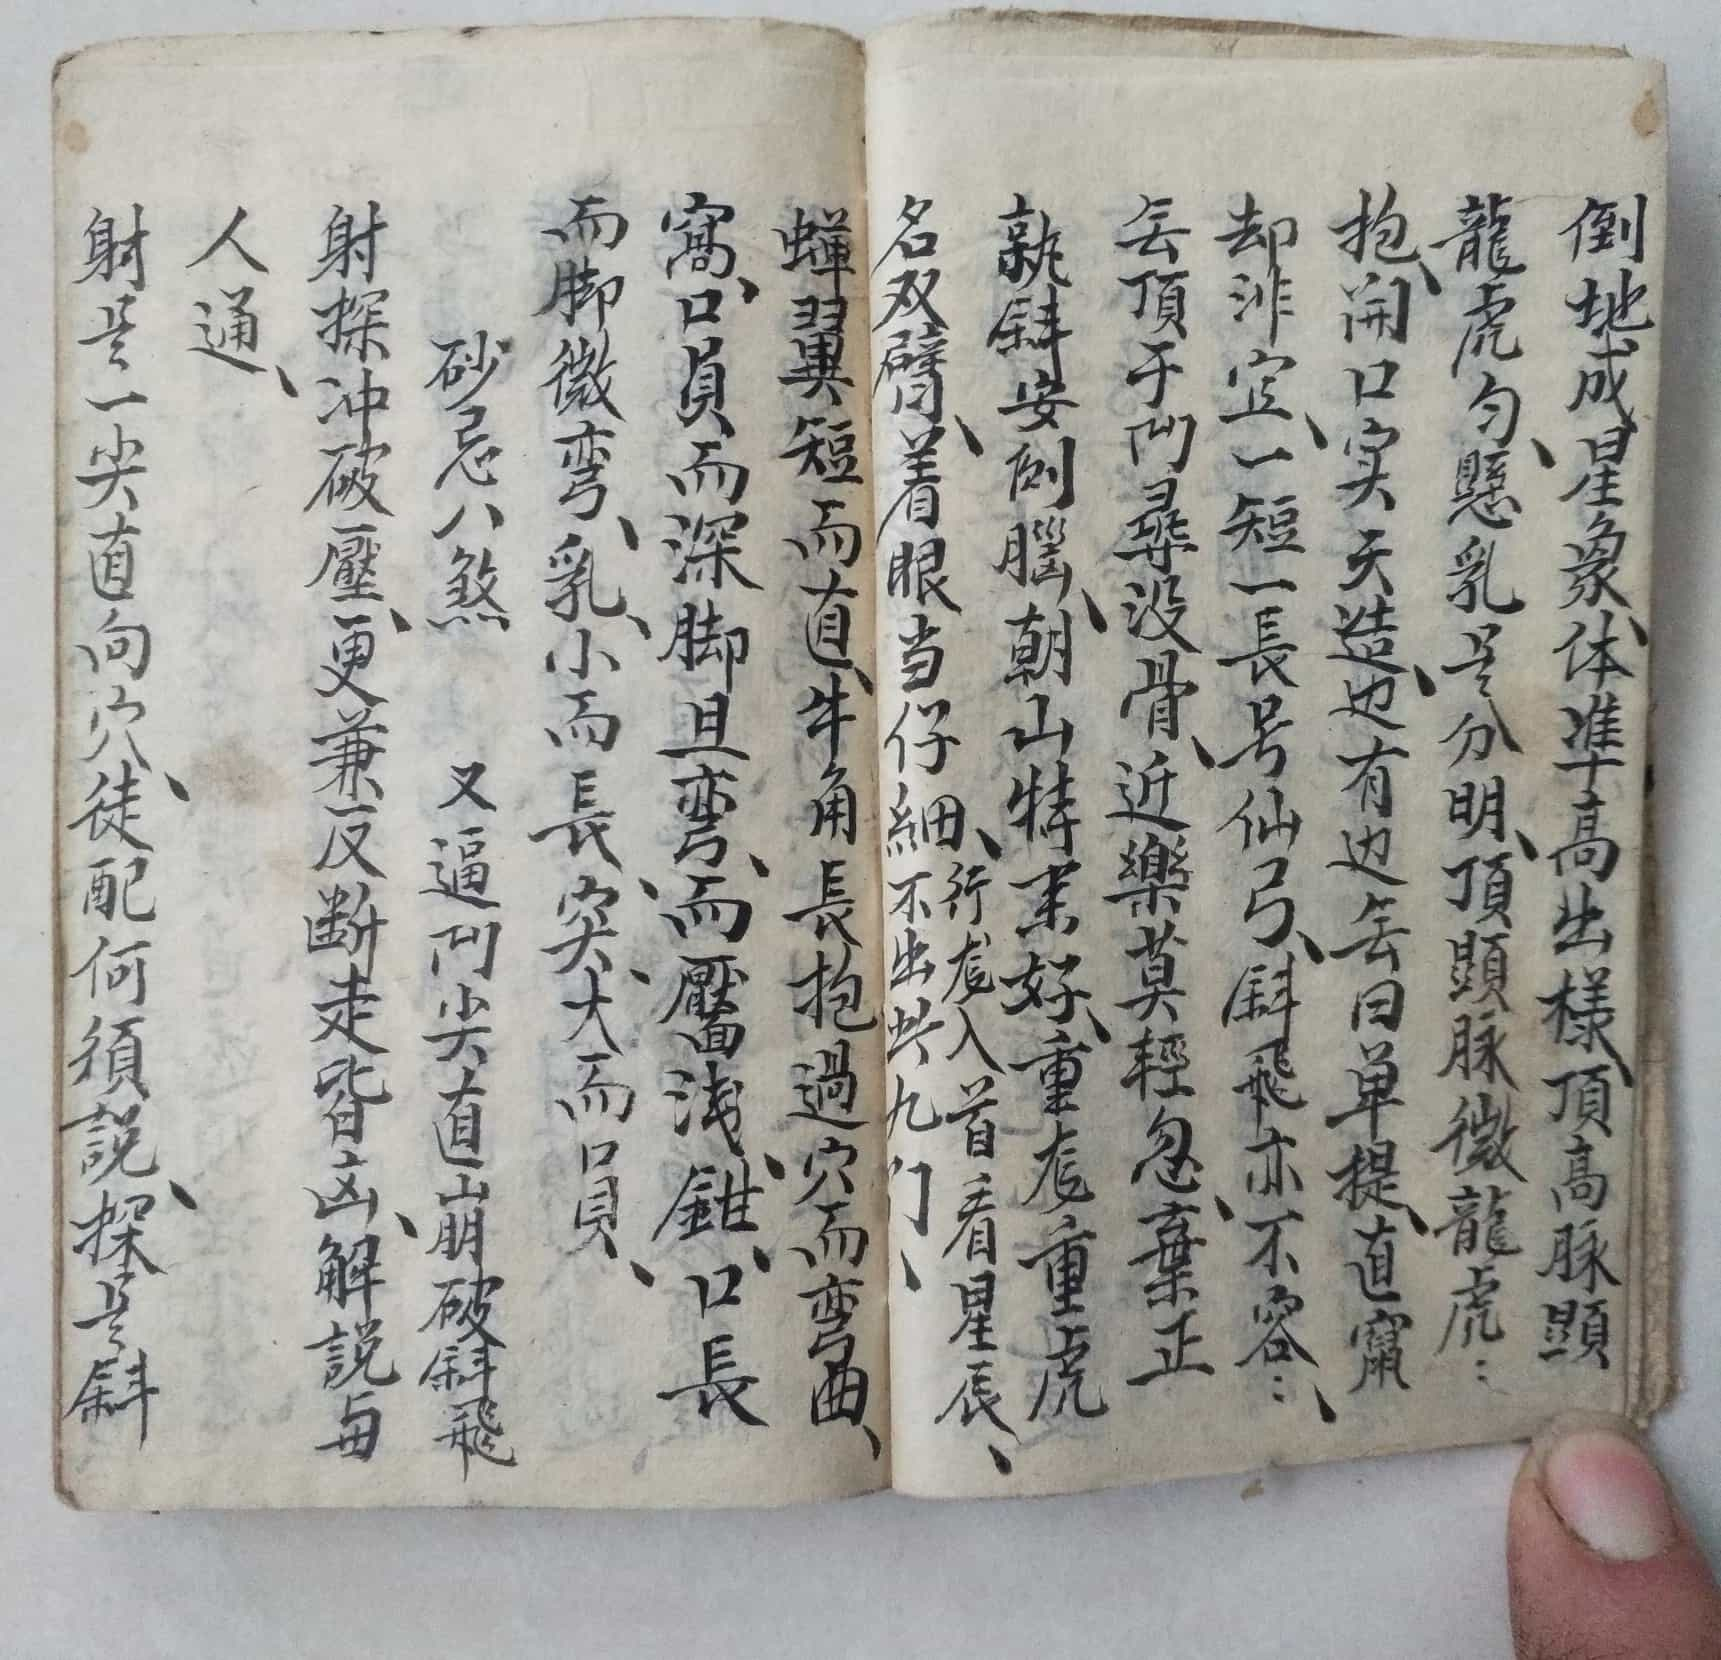 倒地成星象、体準高出様、頂高脉顕
龍虎匀、懸乳是分明、頂顕脉微龍虎:
抱、開口实天造、边有边無曰单提、直窜
却非宜、一短一長号仙弓、斜飛亦不容:、
無頂于凹尋没骨、近樂莫輕忽、棄正
孰斜安倒腦、朝山特來好、重龙重虎
名双臂、着眼当仔細、行龙入首看星辰、
不出此九门、
蝉翼短而直、牛角長抱過穴而弯曲、
窩、口員而深脚且弯、而靨面浅、鉗、口長
而脚微弯、乳、小而長、突、大而員、
砂忌八煞 又逼凹尖直山朋破斜飛
射探冲破壓、更兼反断走皆凶、解説与
人通、
射是一尖直向穴、徒配何須説、探是斜